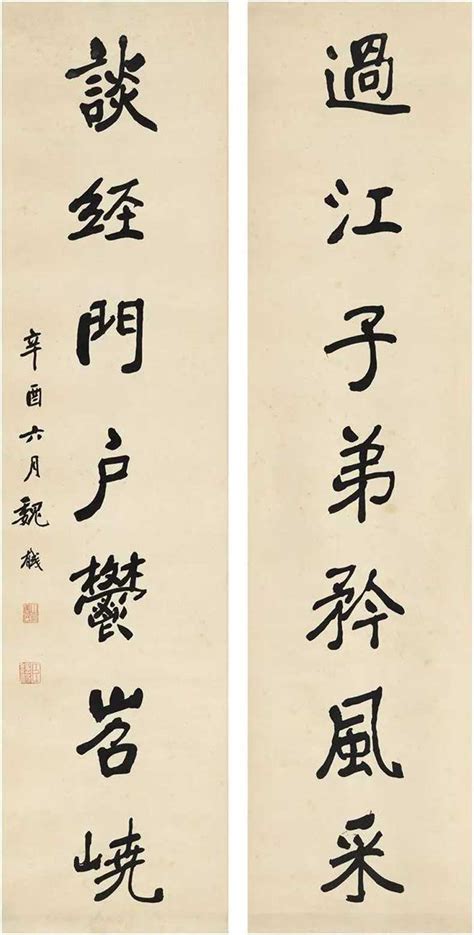 過江子弟矜風采
談经門户鬱岧嶢
辛酉六月魏戫